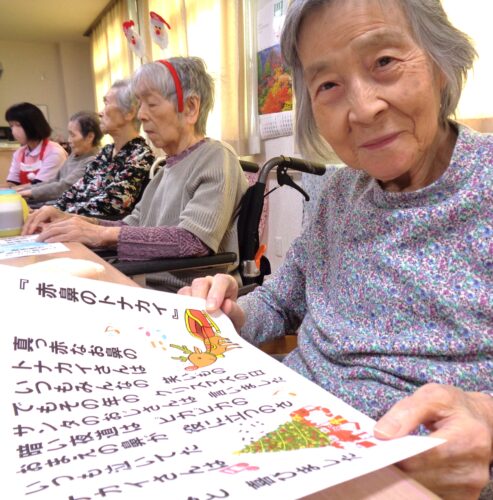 『赤鼻のトナカイ』
真っ赤なお鼻の
トナカイさんは
いつもみんなの 笑いもの
でもその年の クリスマスの日
サンタのおじさんは 言いました
暗い夜道は ピカピカの
おまえの鼻が 役に立つのさ
いつも泣いてた
トナカイさんは
と 喜びました